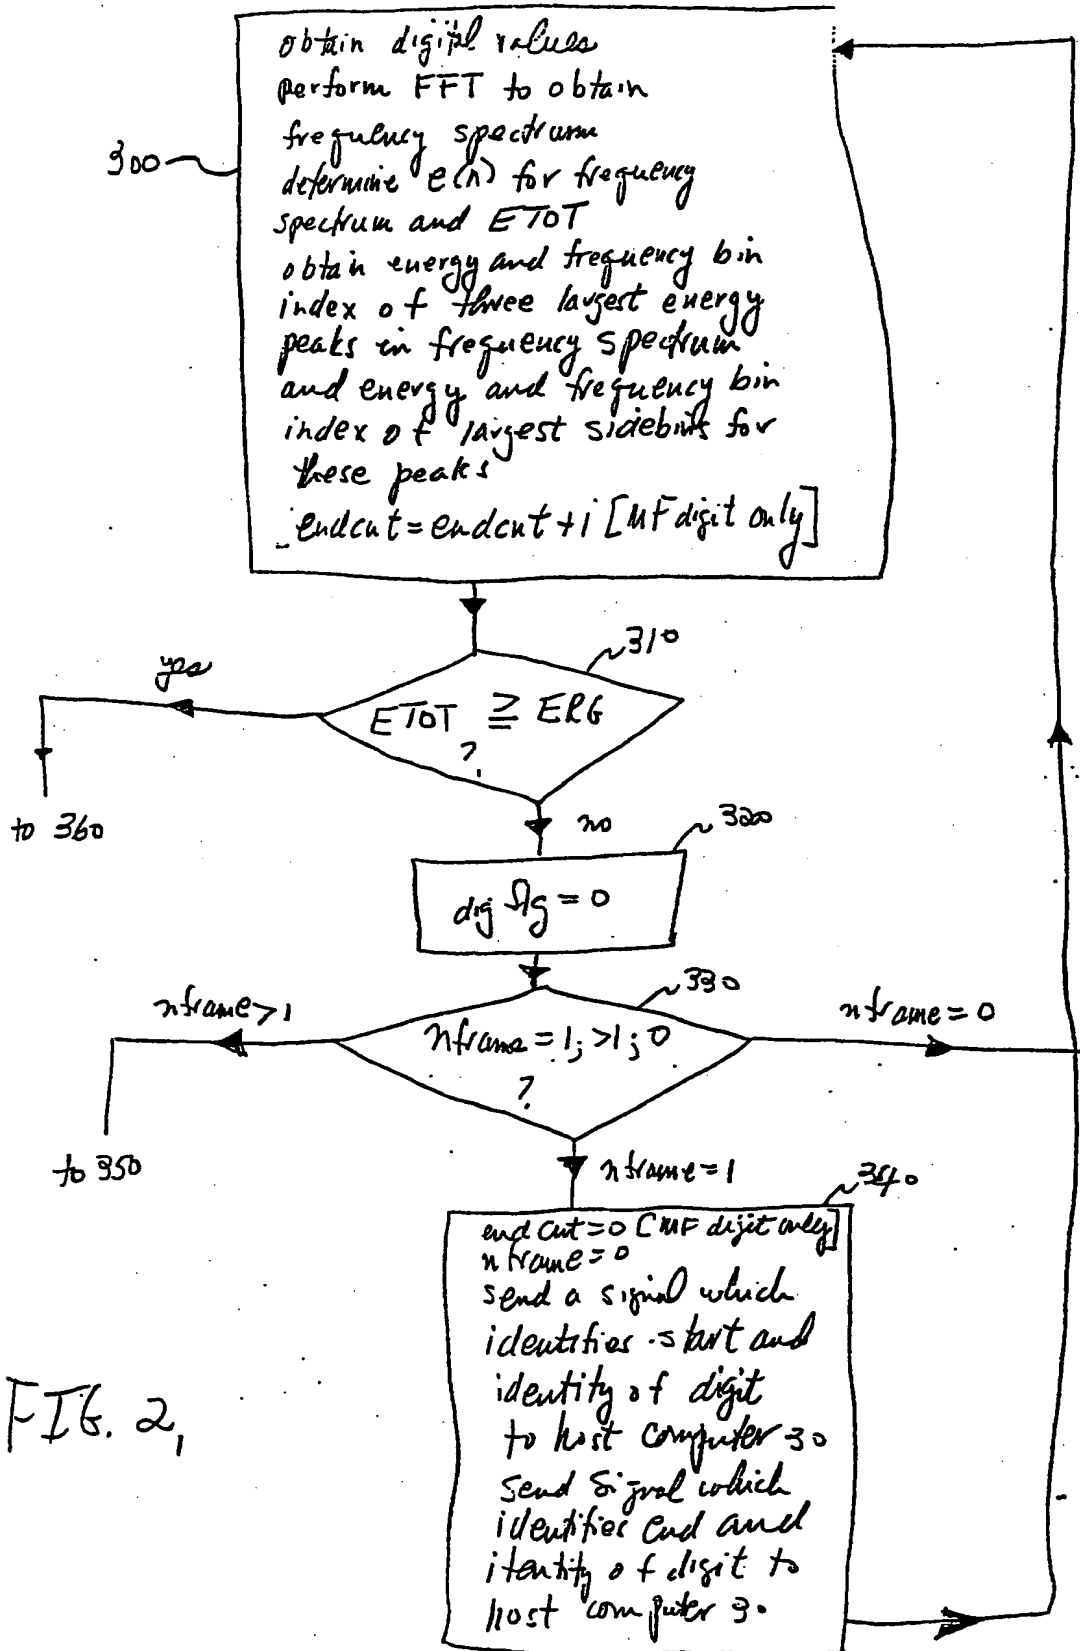 obtain digital values
perform FFT to obtain
frequency spectrum
300
determine e(n) for frequency
spectrum and ETOT
obtain energy and frequency bin
index of three largest energy
peaks in frequency spectrum
and energy and frequency bin
index of largest sidebins for
these peaks
endcnt = endcnt + 1 [MF digit only]
310
yes
ETOT ≧ ERG
?
to 360
no
320
digflg = 0
330
nframe>1
nframe = 1; >1; 0
?
nframe = 0
to 350
nframe = 1
340
endcnt = 0 [MF digit only]
nframe = 0
send a signal which
identifies start and
identity of digit
to host computer 30
send signal which
identifies end and
itentity of digit to
host computer 30
FIG. 2,